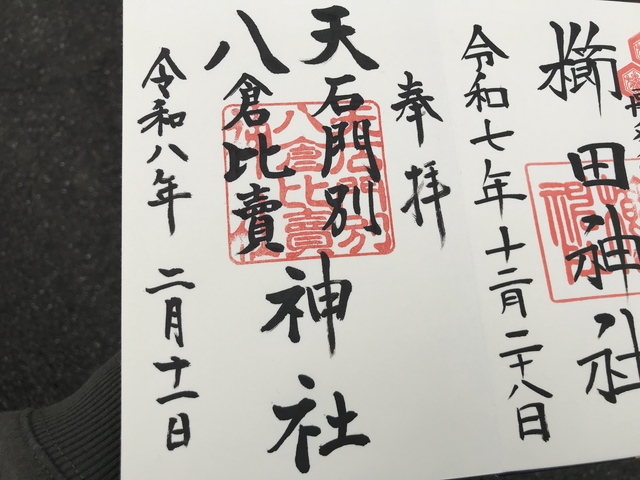 櫛田神社
令和七年十二月二十八日
奉拝
天石門別
八倉比賣
神社
令和八年 二月十一日